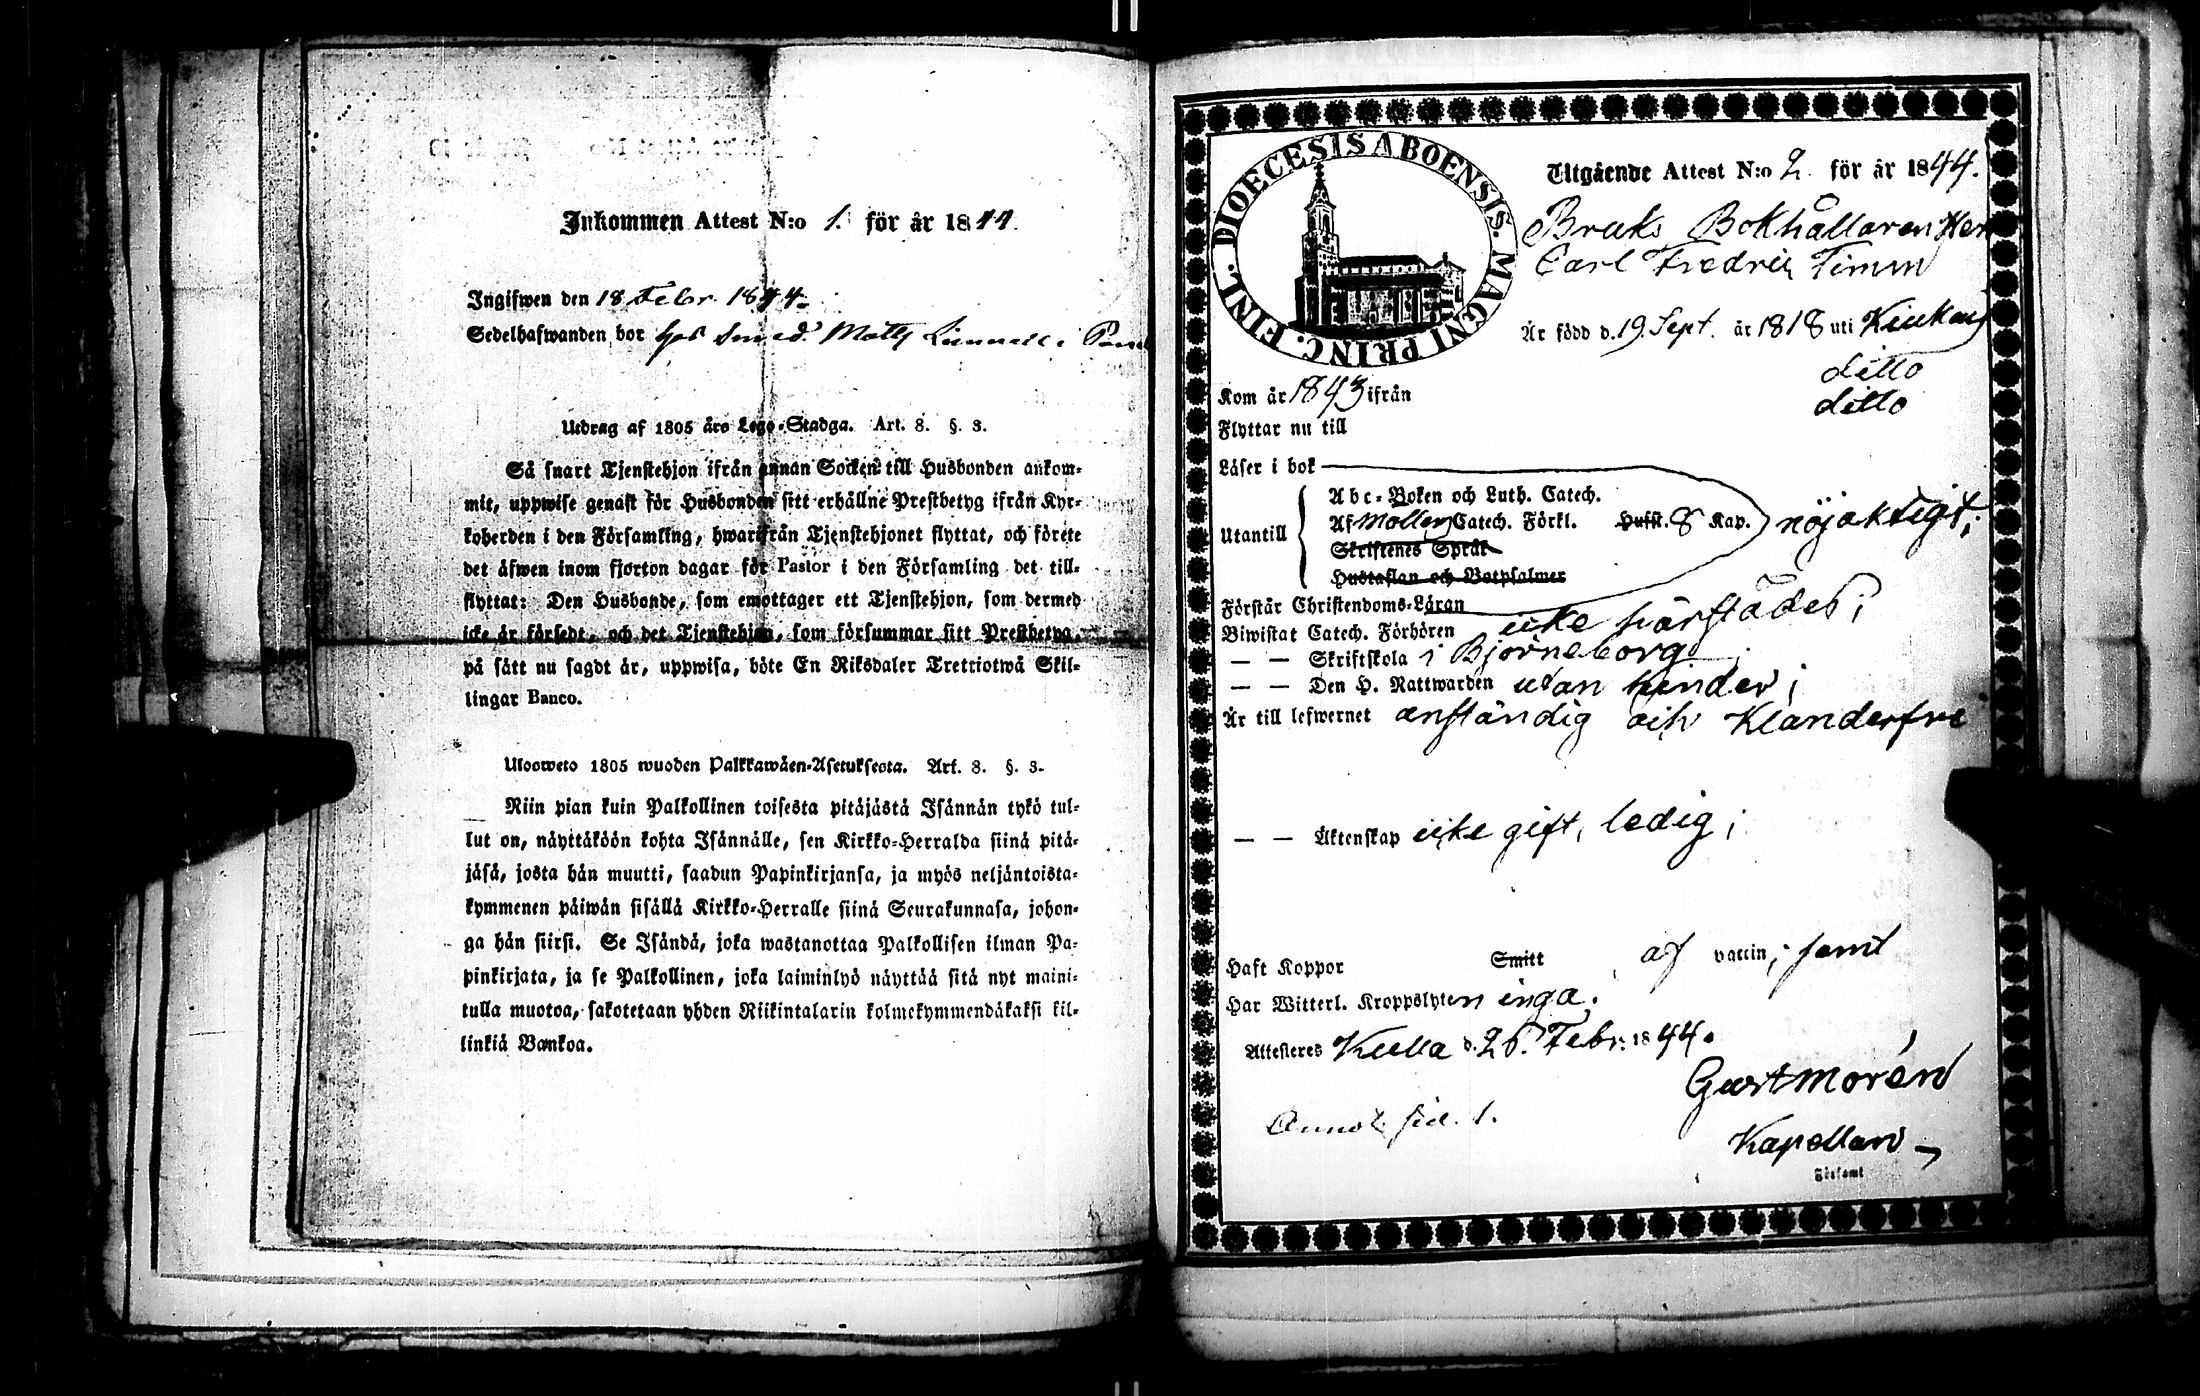 Inkommen Attest N:o 1. för år 1844.
Ingifwen den 18 Febr. 1844.
Sedelhafwanden bor hos Smed. Matts
Utdrag af 1805 års Lego-Stadga. Art. 8. §. 3.
Så snart Tjenstehjon ifrån annan Socken till Husbonden ankom-
mit, uppwise genast för Husbonden sitt erhållne Prestbetyg ifrån Kyr-
koherden i den Församling, hwarifrån Tjenstehjonet flyttat, och förete
det äfwen inom fjorton dagar för Pastor i den Församling det till-
flyttat: Den Husbonde, som emottager ett Tjenstehjon, som dermed
icke är försedt, och det Tjenstehjon, som försummar sitt Prestbetyg,
på sätt nu sagdt är, uppwisa, böte En Riksdaler Tretriotwå Skil-
lingar Banco.
Uloosweto 1805 wuoden Palkkawäen-Asetuksesta. Art. 8. §. 3.
Niin pian kuin Palkollinen toisesta pitäjästä Isännän tykö tul-
lut on, näyttäköön kohta Isännälle, sen Kirkko-Herralda siinä pitä-
jäsä, josta hän muutti, saadun Papinkirjansa, ja myös neljäntoista-
kymmenen päiwän sisällä Kirkko-Herralle siinä Seurakunnasa, johon-
ga hän siirsi. Se Isändä, joka wastanottaa Palkollisen ilman Pa-
pinkirjata, ja se Palkollinen, joka laiminlyö näyttää sitä nyt maini-
tulla muotoa, sakotetaan yhden Riikintalarin kolmekymmendäkaksi kil-
linkiä Bankoa.
DIOECESIS ABOENSIS. MAGNI PRINC. FINL.
Utgående Attest N:o 2. för år 1844.
Bruks Bokhållaren Herr
Carl Fredric Timm
Är född d. 19. Sept. år 1818 uti
Kom år 1843 ifrån ditto
Flyttar nu till ditto
Läser i bok
Utantill
Abc-Boken och Luth. Catech.
Af Möllers Catech. Förkl. Husst. 8 Kap. nöjaktigt;
Skriftenes Språk
Hustaflan och Botpsalmer
Förstår Christendoms-Läran
Biwistat Catech. Förhören icke härstädes;
— — Skriftskola i Björneborg;
— — Den H. Nattwarden utan hinder;
Är till lefwernet anständig och klanderfri
— — Äktenskap icke gift, ledig;
Haft Koppor Smitt af vaccin; samt
Har Witterl. Kroppslyten inga.
Attesteres Kulla d. 26. Febr. 1844.
Gust Morén
Kapellan
Annot. sid. 1.
Församl